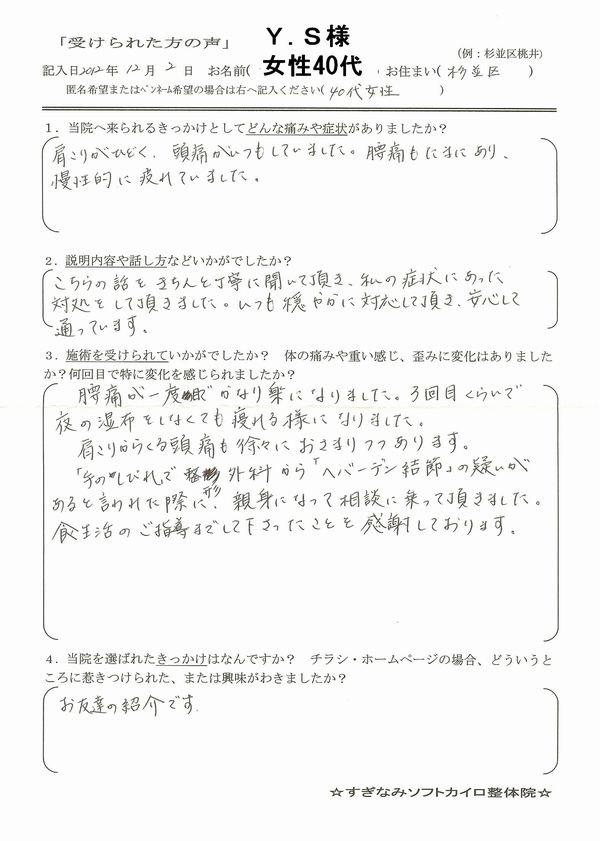 「受けられた方の声」 Ｙ．Ｓ様 (例：杉並区桃井)
記入日2012年 12月 2日 お名前( 女性40代 )お住まい( 杉並区 )
匿名希望またはﾍﾟﾝﾈｰﾑ希望の場合は右へ記入ください( 40代女性 )
１．当院へ来られるきっかけとしてどんな痛みや症状がありましたか？
肩こりがひどく、頭痛がいつもしていました。腰痛もたまにあり、
慢性的に疲れていました。
２．説明内容や話し方などいかがでしたか？
こちらの話をきちんと丁寧に聞いて頂き、私の症状にあった
対処をして頂きました。いつも穏やかに対応して頂き、安心して
通っています。
３．施術を受けられていかがでしたか？ 体の痛みや重い感じ、歪みに変化はありました
か？何回目で特に変化を感じられましたか？
腰痛が一度でかなり楽になりました。3回目くらいで
夜の湿布をしなくても寝れる様になりました。
肩こりからくる頭痛も徐々におさまりつつあります。
「手のしびれ」で整形外科から「ヘバーデン結節」の疑いが
あると言われた際に、親身になって相談に乗って頂きました。
食生活のご指導までして下さったことを感謝しております。
４．当院を選ばれたきっかけはなんですか？ チラシ・ホームページの場合、どういうと
ころに惹きつけられた、または興味がわきましたか？
お友達の紹介です.
☆すぎなみソフトカイロ整体院☆